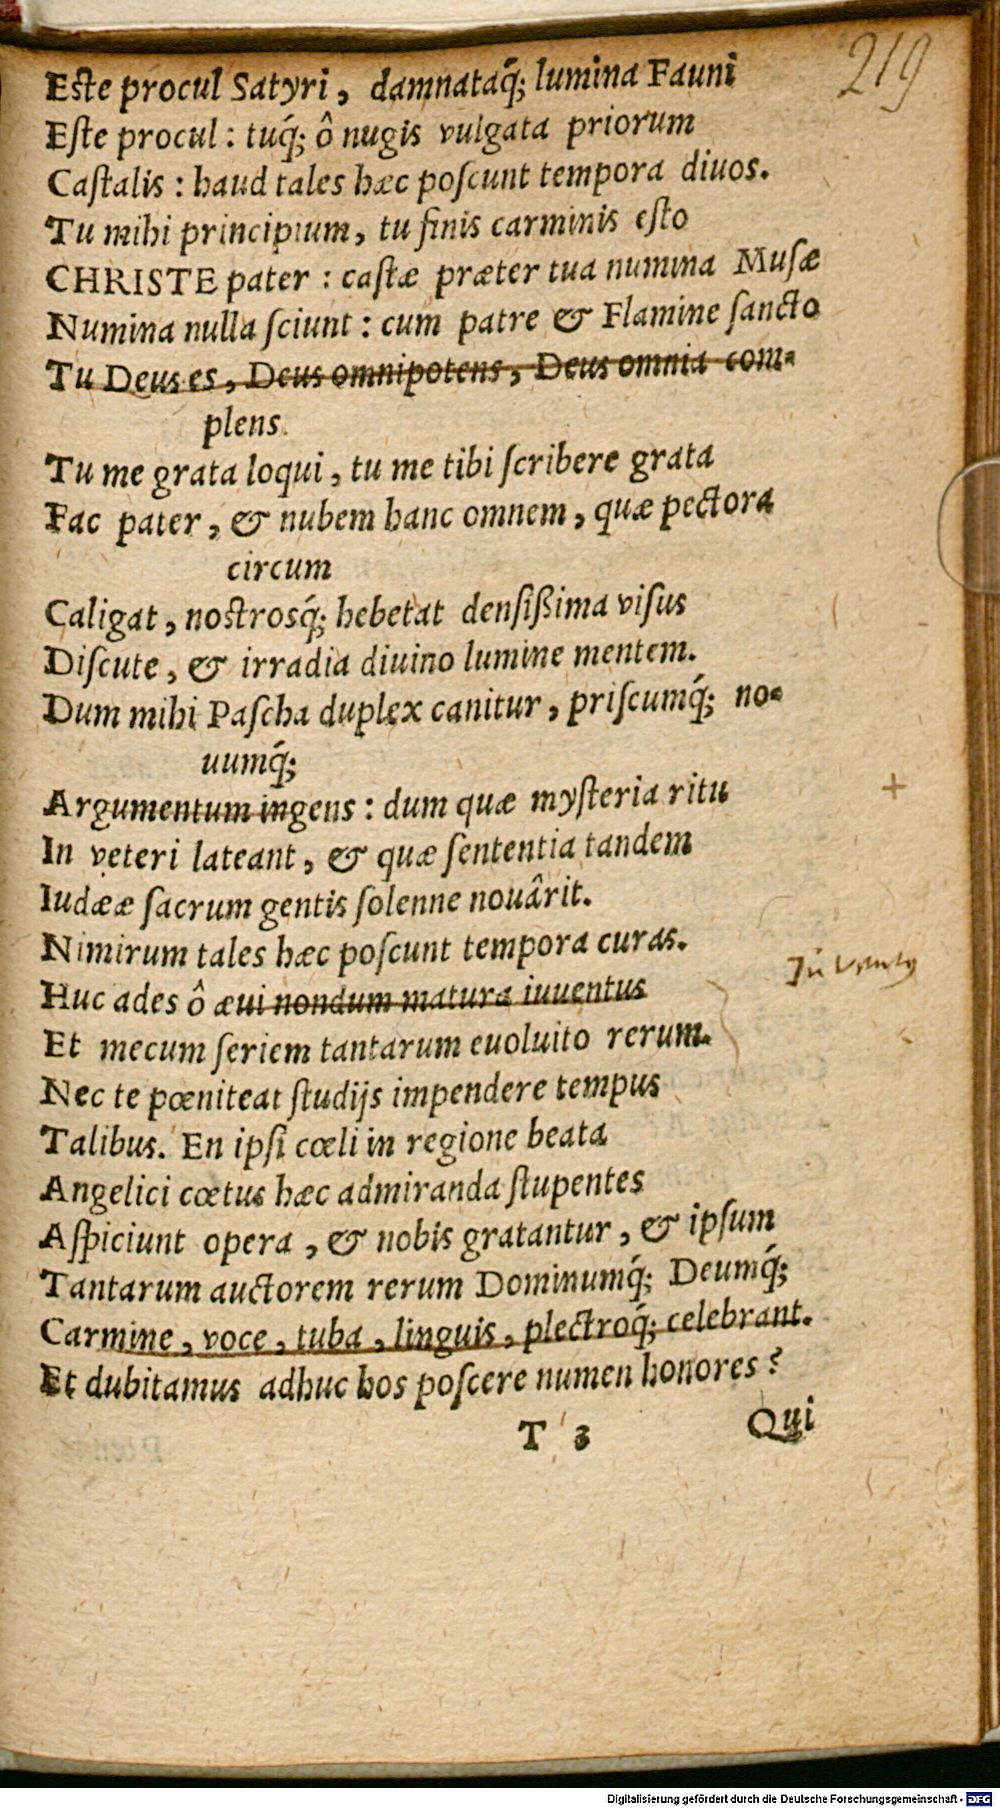 219
Este procul Satyri, damnataq́; lumina Fauni
Eſte procul: tuq́; ô nugis vulgata priorum
Caſtalis: haud tales hæc poſcunt tempora diuos.
Tu mihi principium, tu finis carminis eſto
CHRISTE pater: caſtæ præter tua numina Muſæ
Numina nulla ſciunt: cum patre & Flamine ſancto
Tu Deus es, Deus omnipotens, Deus omnia com-
plens.
Tu me grata loqui, tu me tibi ſcribere grata
Fac pater, & nubem hanc omnem, quæ pectora
circum
Caligat, noſtrosq́; hebetat denſißima viſus
Diſcute, & irradia diuino lumine mentem.
Dum mihi Paſcha duplex canitur, priſcumq́; no-
uumq́;
Argumentum ingens: dum quæ myſteria ritu
In veteri lateant, & quæ ſententia tandem
Iudææ ſacrum gentis ſolenne nouârit.
Nimirum tales hæc poſcunt tempora curas.
Huc ades ô æui nondum matura iuuentus
Juventus
Et mecum ſeriem tantarum euoluito rerum.
Nec te pœniteat ſtudijs impendere tempus
Talibus. En ipſi cœli in regione beata
Angelici cœtus hæc admiranda ſtupentes
Aſpiciunt opera, & nobis gratantur, & ipſum
Tantarum auctorem rerum Dominumq́; Deumq́;
Carmine, voce, tuba, linguis, plectroq́; celebrant.
Et dubitamus adhuc hos poſcere numen honores?
T 3 Qui
Digitalisierung gefördert durch die Deutsche Forschungsgemeinschaft - DFG